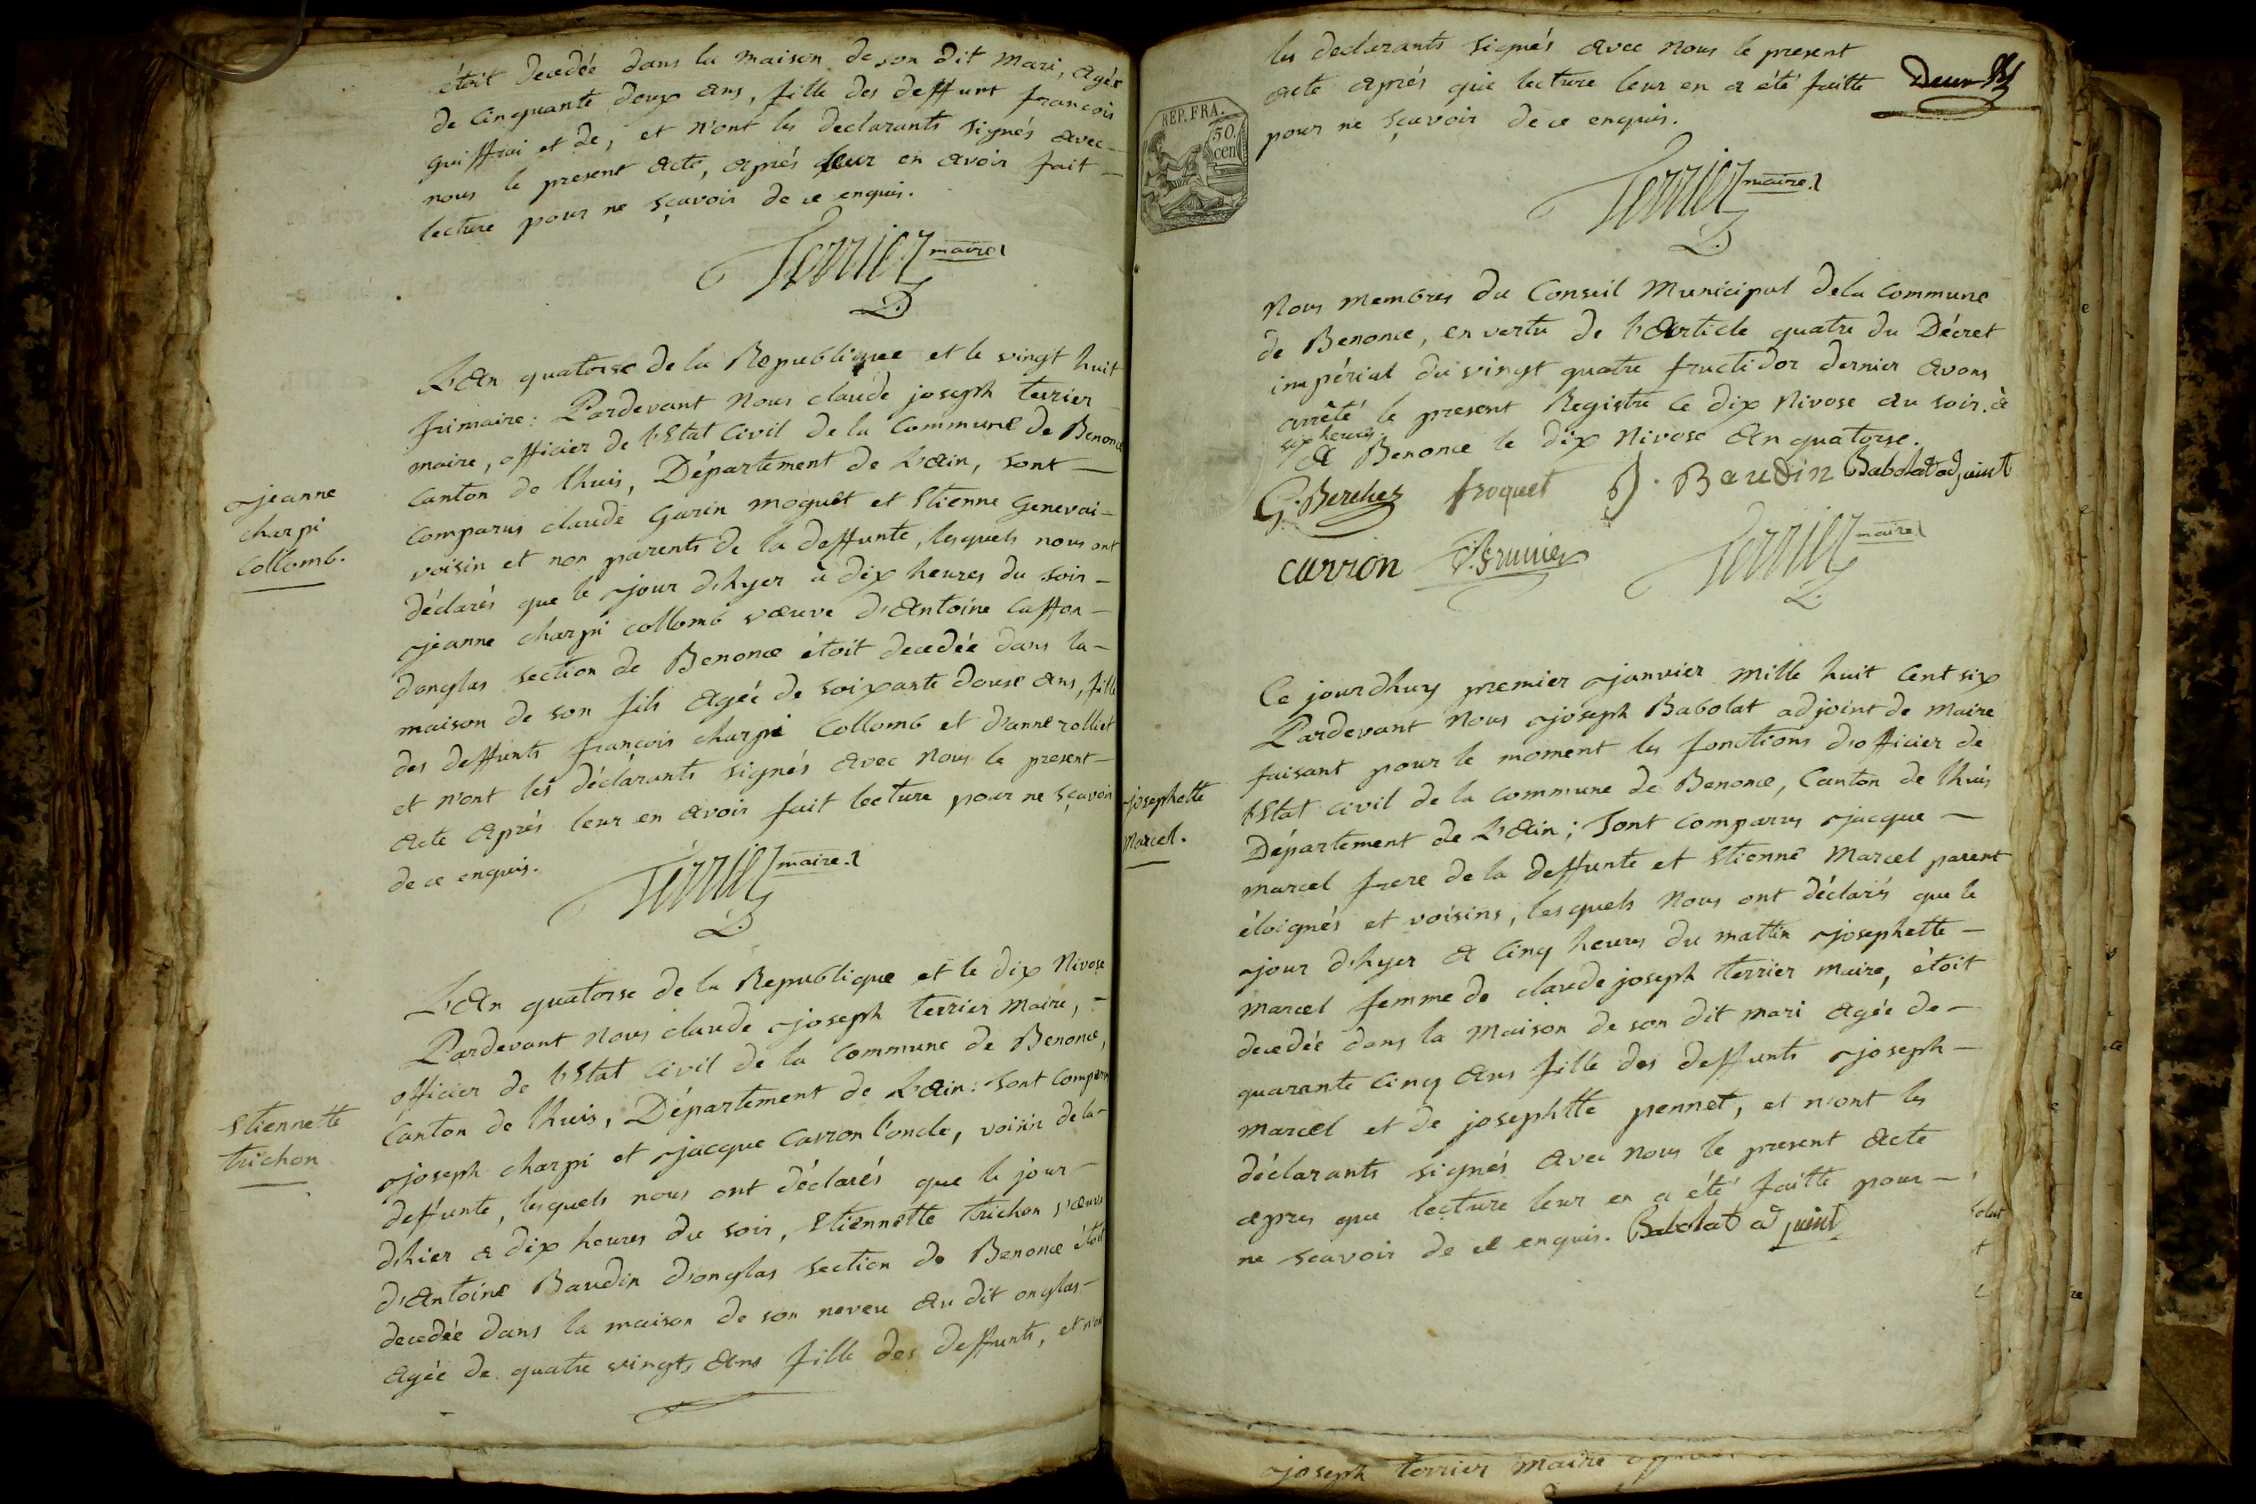 étoit decedée dans la maison de son dit mari, agée
de cinquante deux ans, fille des deffunt francois
guiffrai et de, et n'ont les declarants signés avec
nous le present acte, après leur en avoir fait
lecture pour ne sçavoir de ce enquis.
Terrier maire
L'an quatorse de la Republique et le vingt huit
frimaire: Pardevant nous claude joseph terrier
maire, officier de l'Etat civil de la commune de Benonce
canton de lhuis, Département de L'ain, sont
jeanne
charpi
collomb.
comparus claude Garin moquet et Etienne Genevai
voisin et non parents de la deffunte, lesquels nous ont
déclarés que le jour d'hyer à dix heures du soir
jeanne charpi collomb vœuve d'Antoine Caffon
d'onglas section de Benonce étoit decedée dans la
maison de son fils agée de soixante douse ans, fille
des deffunts françois charpi Collomb et d'anne rolliet
et n'ont les déclarants signés avec nous le present
acte après leur en avoir fait lecture pour ne sçavoir
de ce enquis.
Terrier maire.
L'an quatorse de la Republique et le dix Nivose
Pardevant nous claude joseph terrier maire,
officier de l'Etat civil de la commune de Benonce,
Canton de lhuis, Département de L'ain: sont comparus
Etiennette
trichon
joseph charpi et jacque Carron l'oncle, voisin de la
deffunte, lesquels nous ont déclarés que le jour
d'hier a dix heures du soir, Etiennette trichon vœuve
d'Antoine Baudin d'onglas section de Benonce étoit
decedée dans la maison de son neveu au dit onglas
agée de quatre vingts ans fille des deffunts, et n'ont
les declarants signés avec nous le present
acte après que lecture leur en a été faitte
pour ne sçavoir de ce enquis.
Deux
REP. FRA.
50.
cen
Terrier maire.
Nous membres du Conseil Municipal de la commune
de Benonce, en vertu de l'Article quatre du Décret
impérial du vingt quatre fructidor dernier avons
arrêté le present Registre ce dix Nivose au soir à
six heures.
A Benonce le dix Nivose An quatorse.
G. Berchez froquet J. Baudin Babolat adjoint
carron Terrier maire
Ce jourdhuy premier janvier mille huit cent six
Pardevant nous joseph Babolat adjoint de maire
faisant pour le moment les fonctions d'officier de
l'Etat civil de la commune de Benonce, Canton de lhuis
josephette
Marcel.
Département de L'ain; sont comparus jacque
marcel frere de la deffunte et Etienne Marcel parent
éloignés et voisins, lesquels nous ont déclarés que le
jour d'hyer a cinq heures du mattin josephette
marcel femme de claude joseph terrier maire, étoit
decedée dans la maison de son dit mari agée de
quarante cinq ans fille des deffunts joseph
marcel et de josephtte pennet, et n'ont les
déclarants signés avec nous le present acte
apres que lecture leur en a été faitte pour
ne scavoir de ce enquis. Babolat adjoint
joseph terrier maire